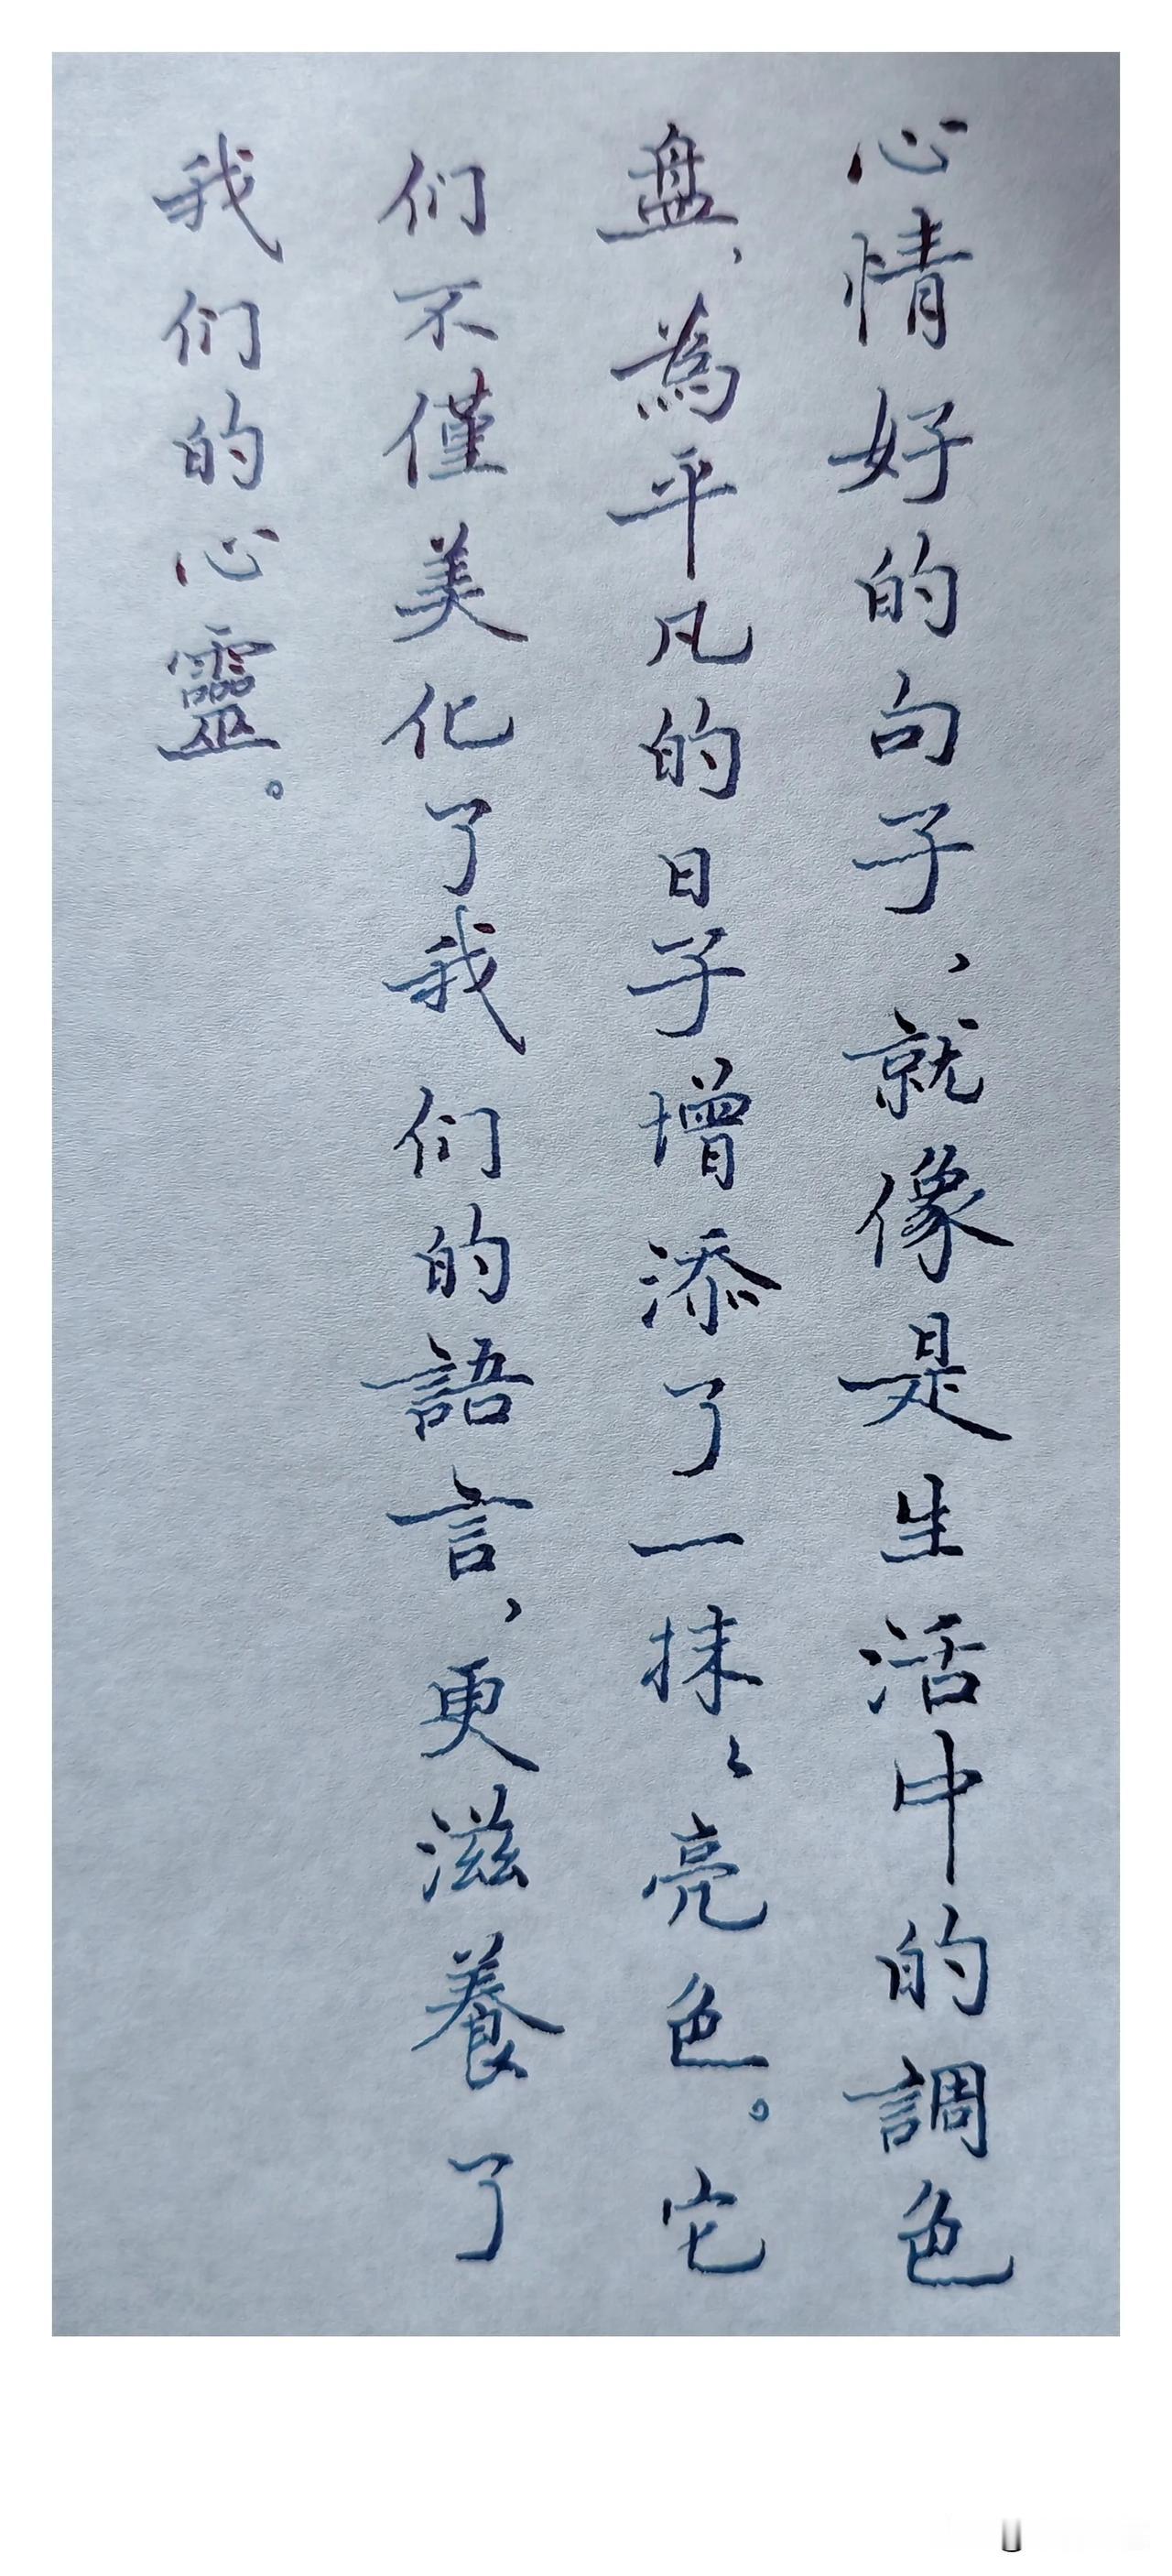 心情好的句子，就像是生活中的調色
盘，為平凡的日子增添了一抹々亮色。它
们不僅美化了我们的語言，更滋養了
我们的心靈。